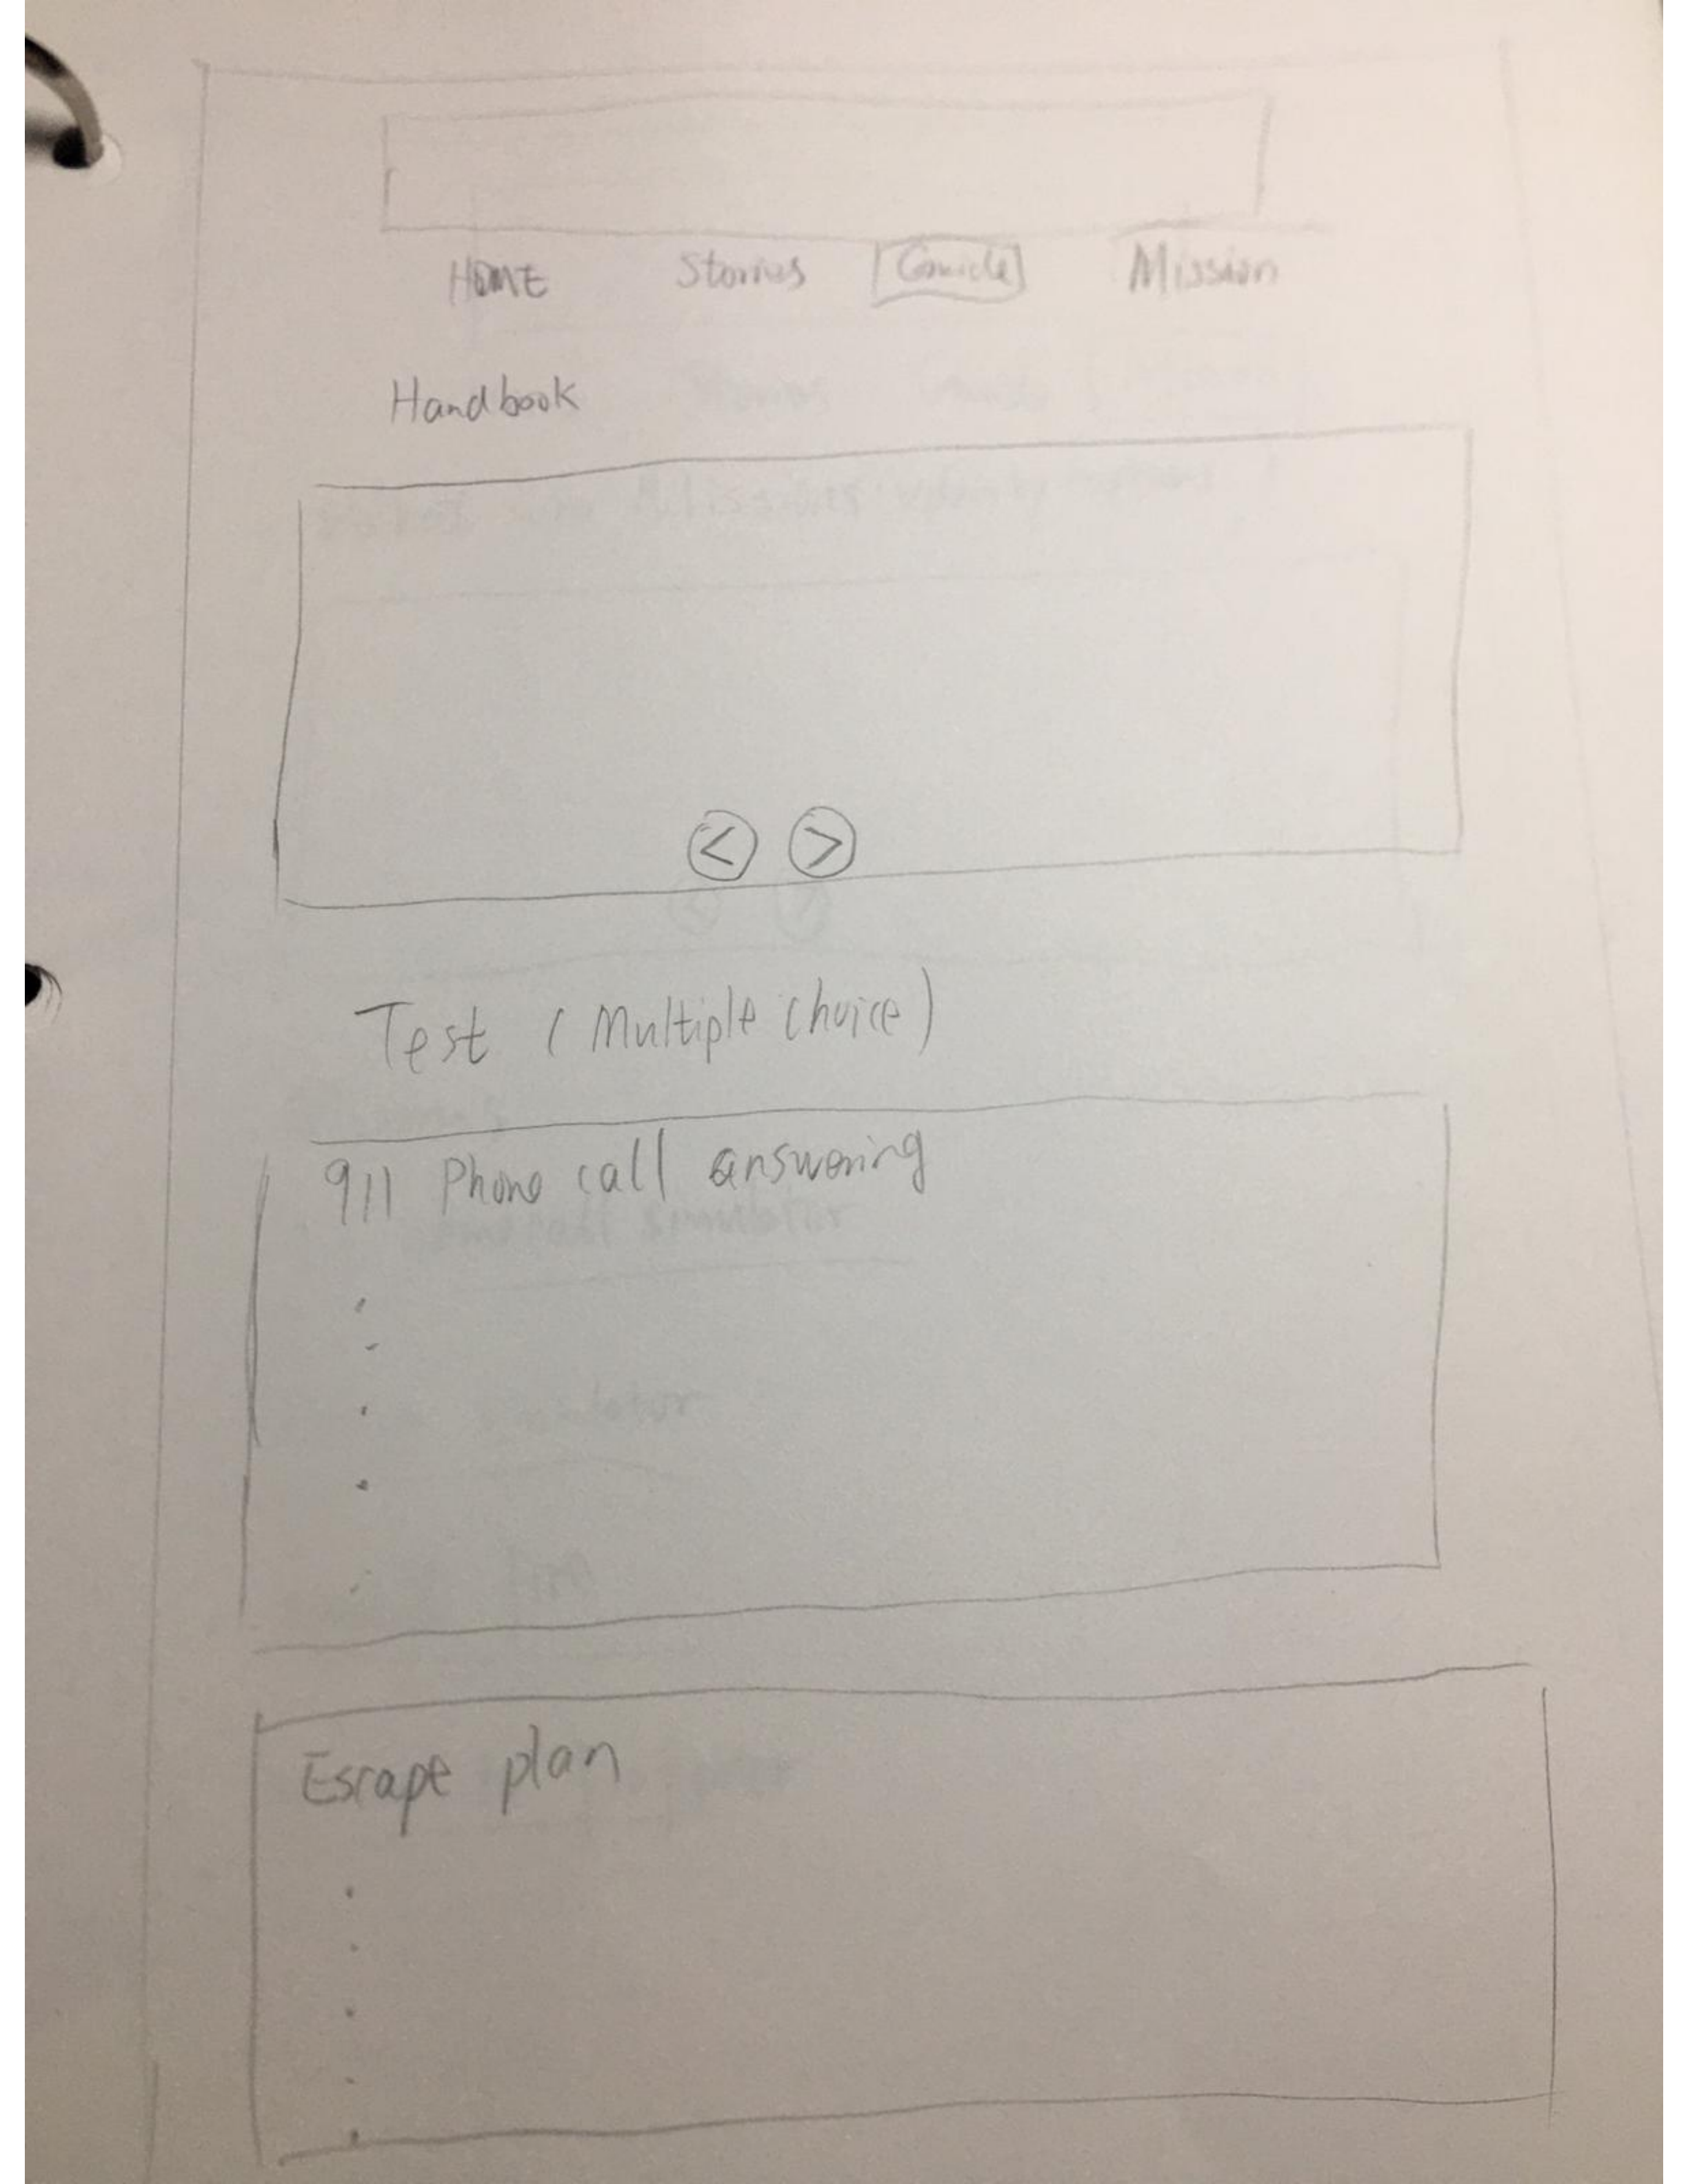 HOME Stories Guide Mission
Handbook
< >
Test (Multiple choice)
911 Phone call answering
Escape plan